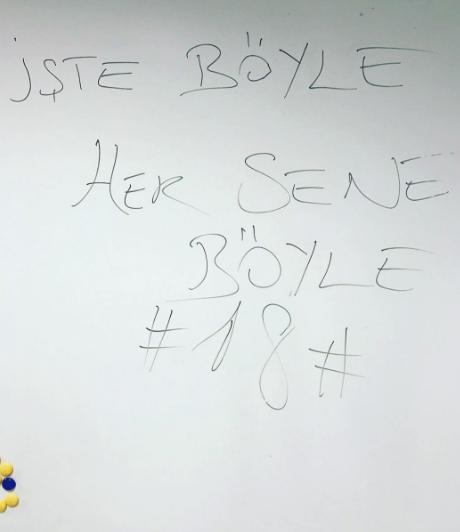 İŞTE BÖYLE
HER SENE
BÖYLE
#18#